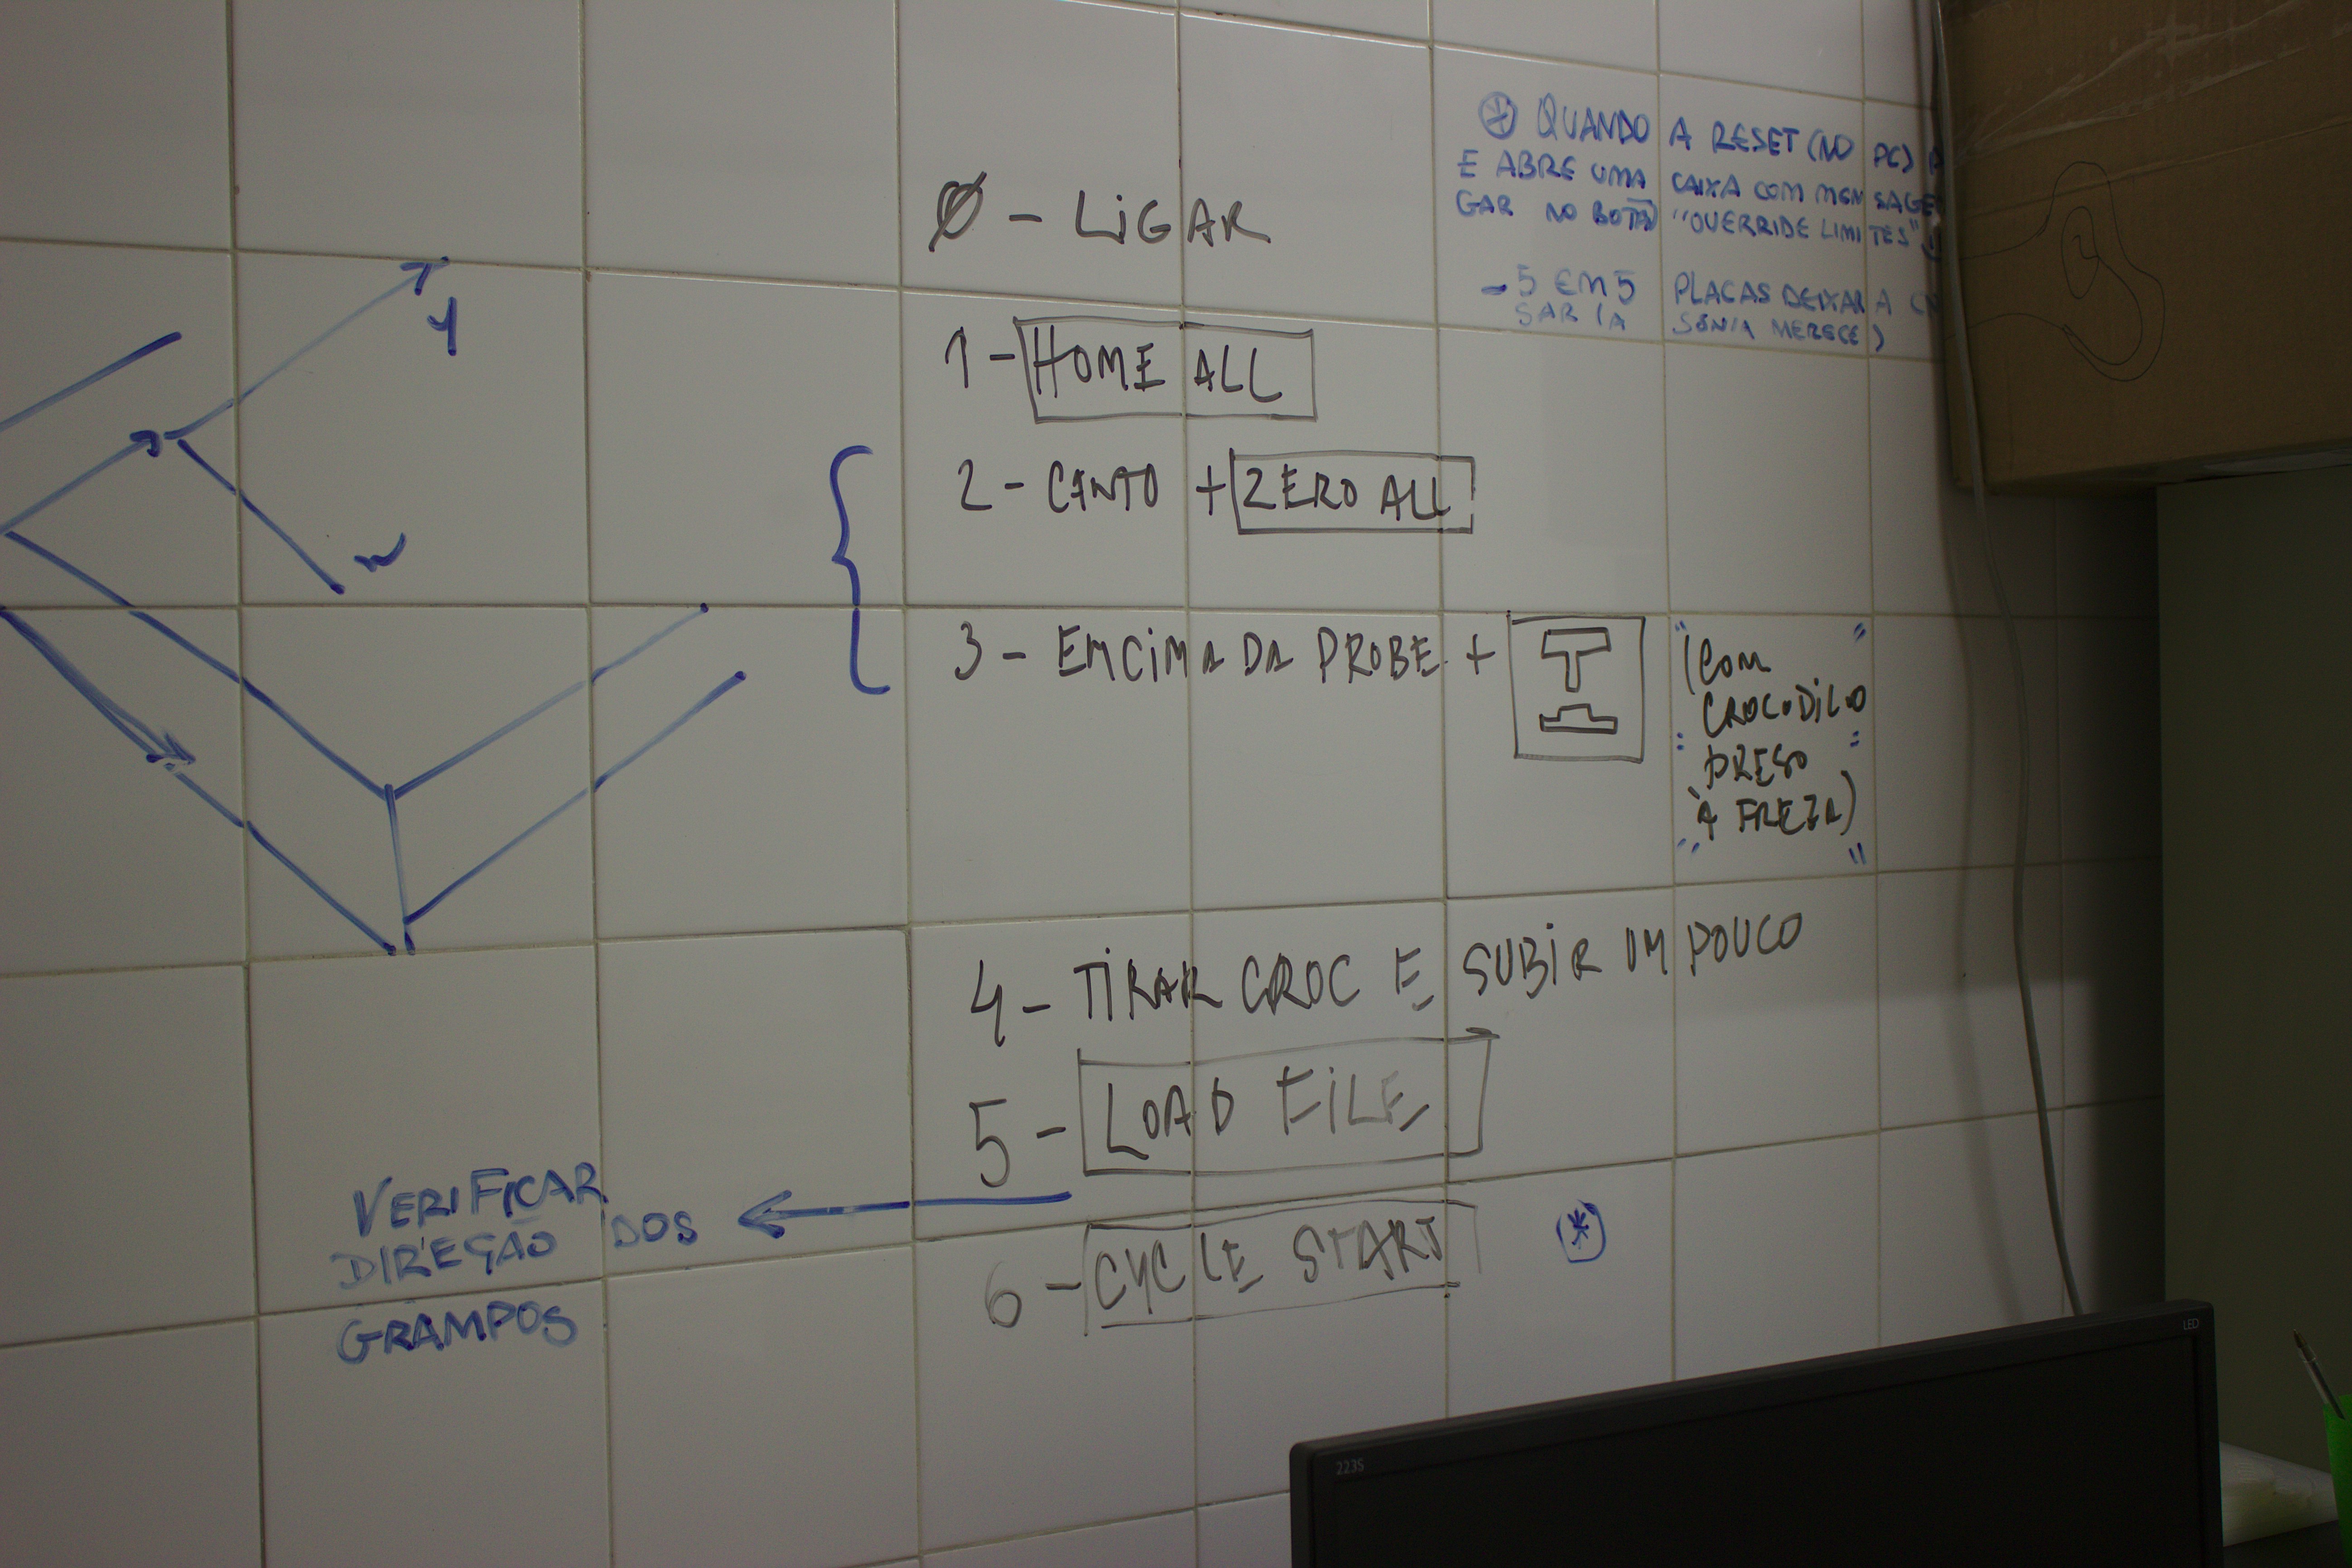 Ø - LIGAR
1 - HOME ALL
2 - CANTO + ZERO ALL
3 - EMCIMA DA PROBE +
(COM
CROCODILO
PRESO
À FREZA)
4 - TIRAR CROC E SUBIR UM POUCO
5 - LOAD FILE
6 - CYCLE START *
VERIFICAR
DIREÇÃO DOS
GRAMPOS
* QUANDO A RESET (NO PC)
E ABRE UMA CAIXA COM MENSAGE
GAR NO BOTÃO "OVERRIDE LIMITES"
- 5 EM 5 PLACAS DEIXAR A
SAR (A SÔNIA MERECE)
Y
LED
223S